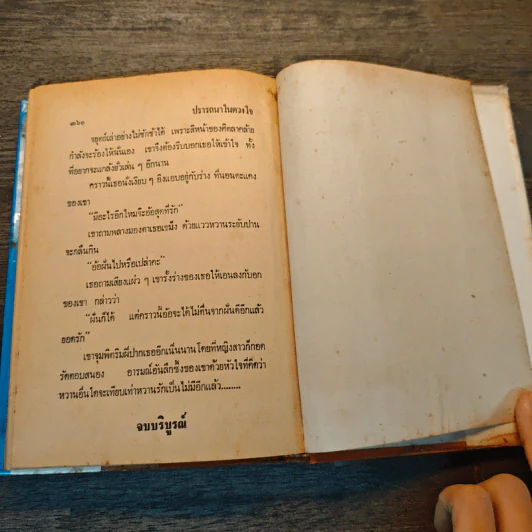 ๓๖๑ ปรารถนาในดวงใจ
จยุตธ์เล่าอย่างไม่ชักช้าได้ เพราะสีหน้าของศิลาคล้าย
กำลังจะร้องไห้นั่นเอง เขาจึงต้องรีบบอกเธอให้เข้าใจ ทั้ง
ที่อยากจะแกล้งยั่วเล่น ๆ อีกนาน
คราวนี้เธอนั่งเงียบ ๆ อิงแอบอยู่กับร่าง ที่นอนตะแคง
ของเขา
"มีอะไรอีกไหมจ๊ะอ้อสุดที่รัก"
เขาถามพลางมองตาเธอเขม็ง ด้วยแววหวานระยับปาน
จะกลืนกิน
"อ้อฝันไปหรือเปล่าคะ"
เธอถามเสียงแผ่ว ๆ เขารั้งร่างของเธอให้เอนลงกับอก
ของเขา กล่าวว่า
"ฝันก็ได้ แต่คราวนี้อ้อจะได้ไม่ตื่นจากฝันดีอีกแล้ว
ยอดรัก"
เขาจุมพิตริมฝีปากเธออีกเนิ่นนาน โดยที่หญิงสาวก็กอด
รัดตอบสนอง อารมณ์อันลึกซึ้งของเขาด้วยหัวใจที่คิดว่า
หวานอื่นใดจะเทียบเท่าหวานรักเป็นไม่มีอีกแล้ว........
จบบริบูรณ์